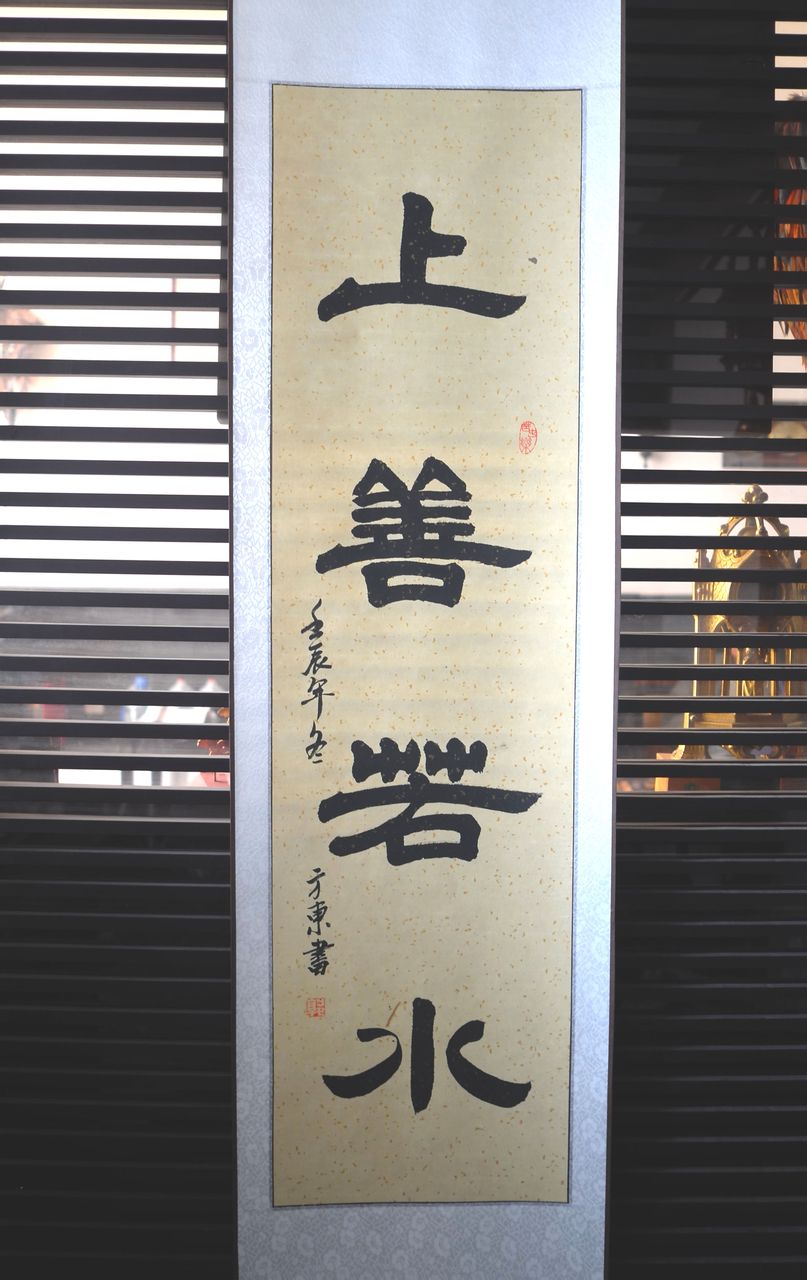 上善若水
壬辰年冬
方東書